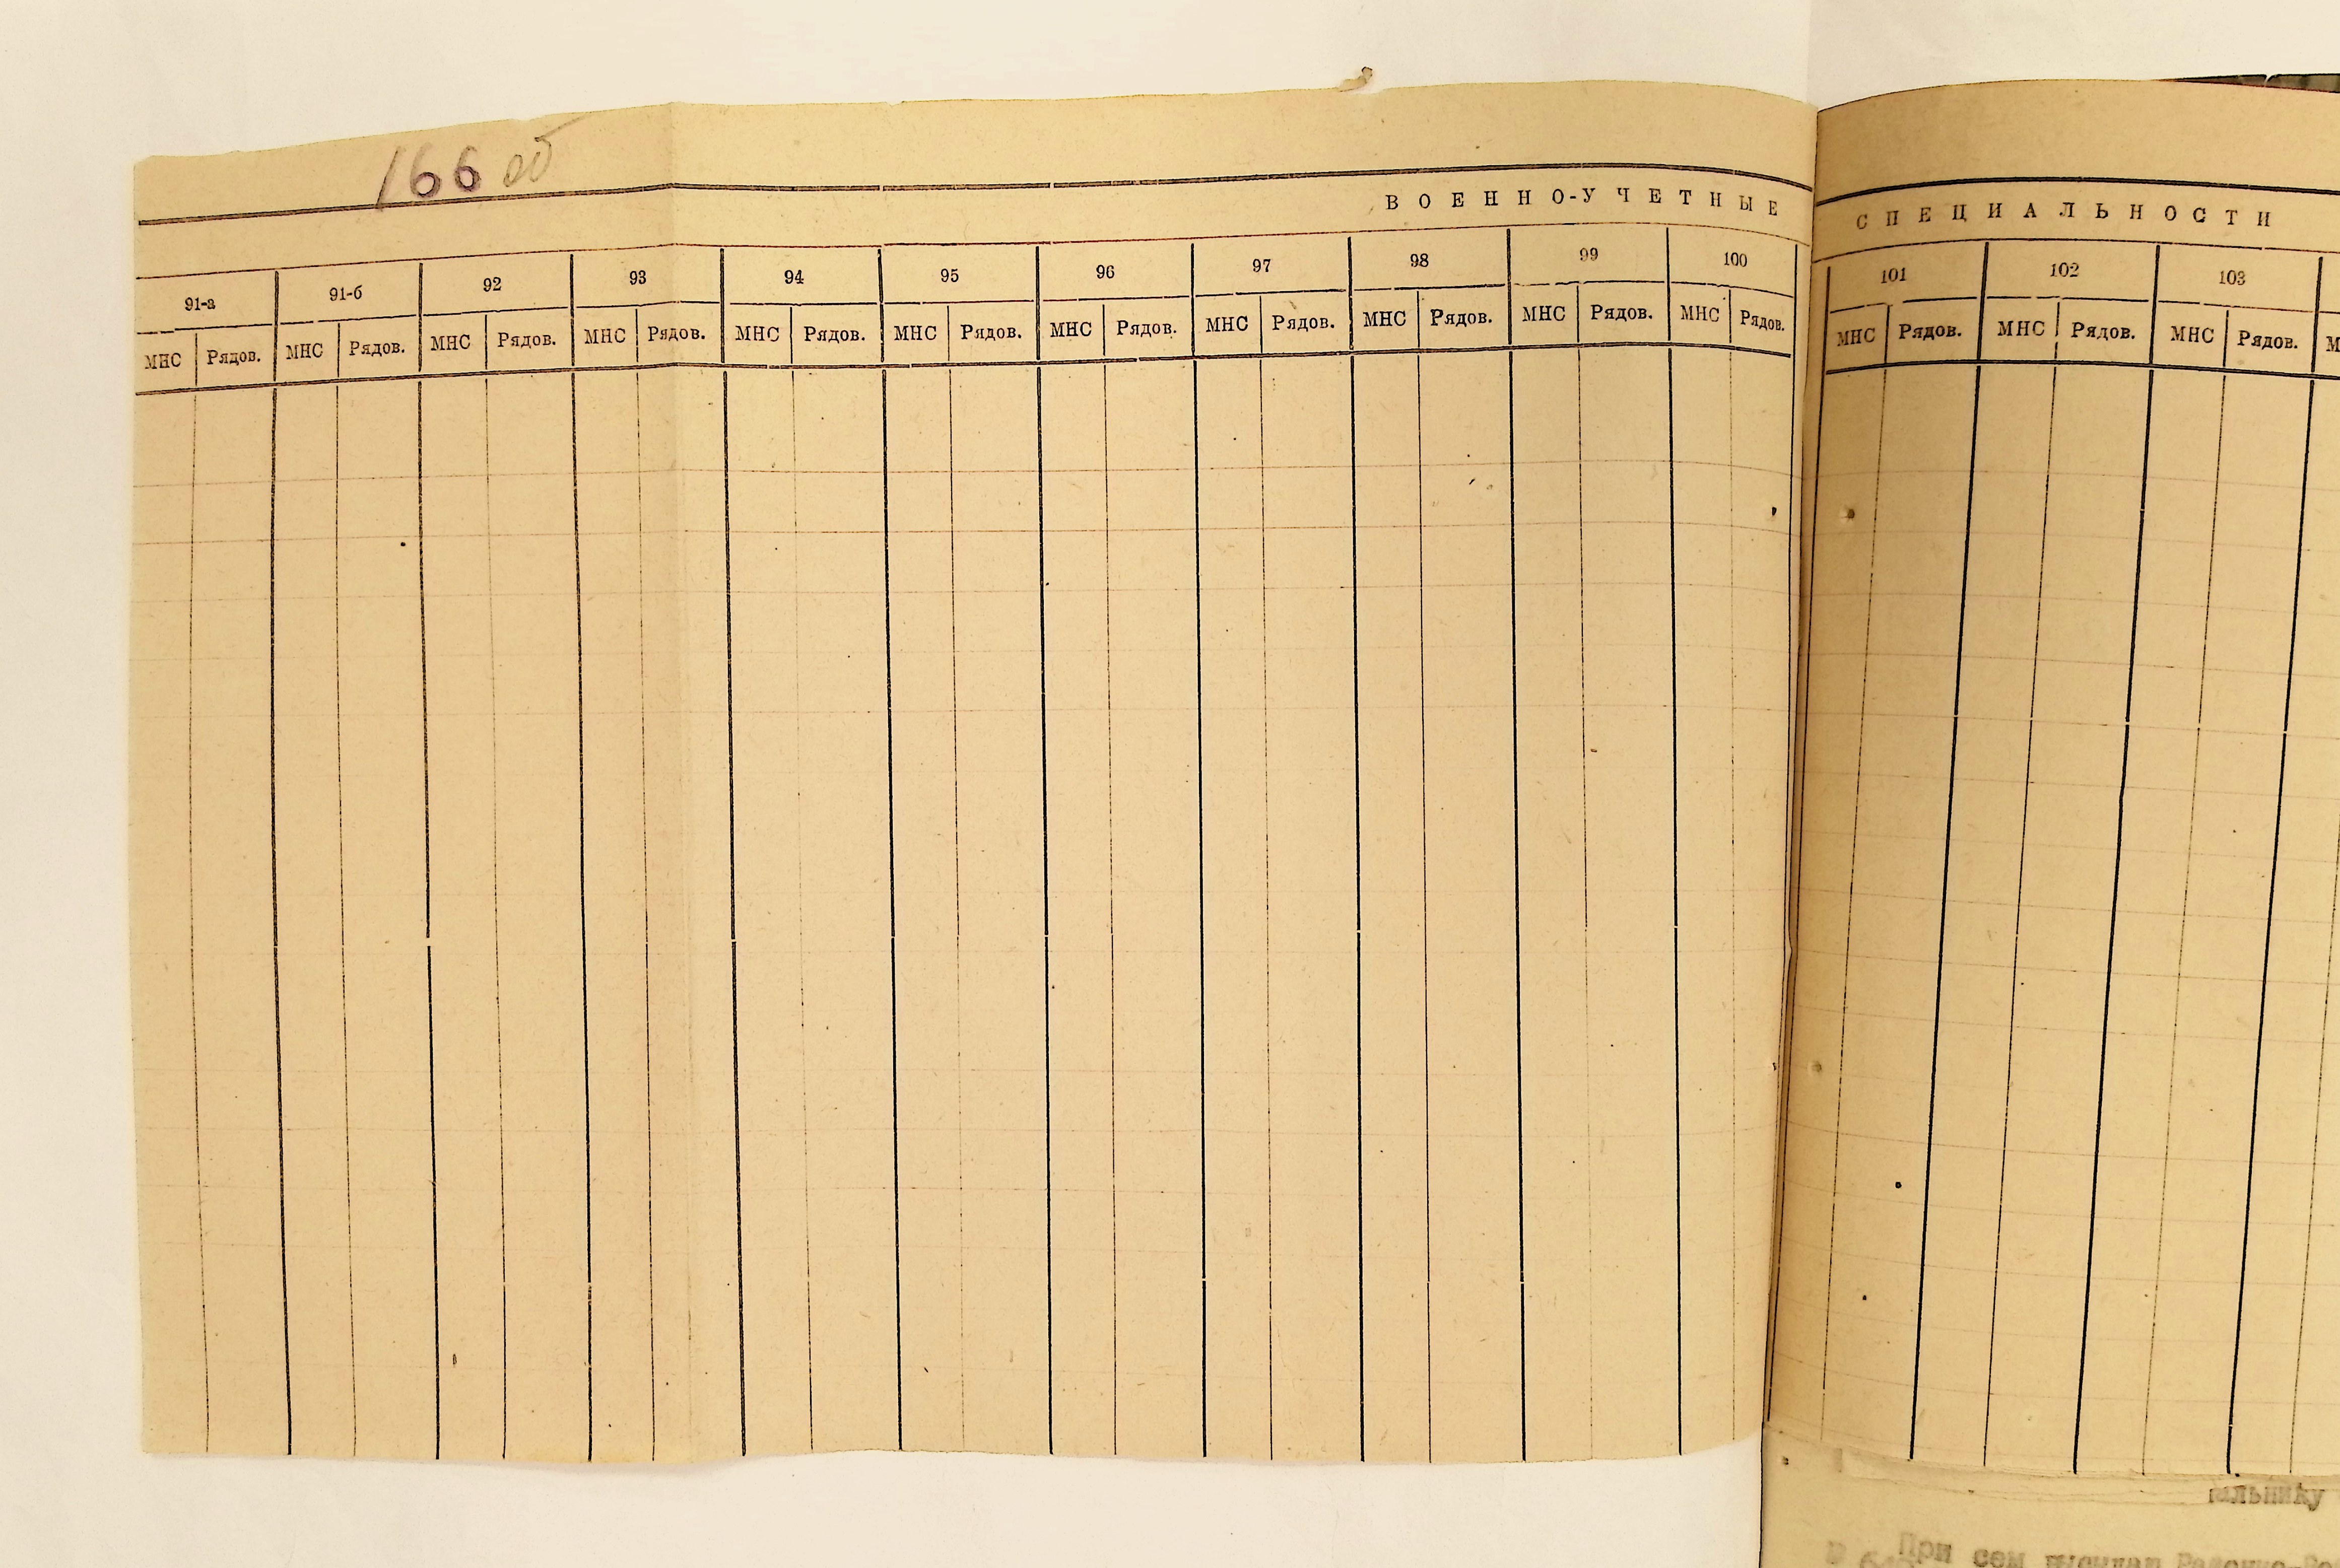 166 об
ВОЕННО-УЧЕТНЫЕ СПЕЦИАЛЬНОСТИ
91-а 91-б 92 93 94 95 96 97 98 99 100 101 102 103
МНС Рядов. МНС Рядов. МНС Рядов. МНС Рядов. МНС Рядов. МНС Рядов. МНС Рядов. МНС Рядов. МНС Рядов. МНС Рядов. МНС Рядов. МНС Рядов. МНС Рядов. МНС Рядов. М
альнику
При сем